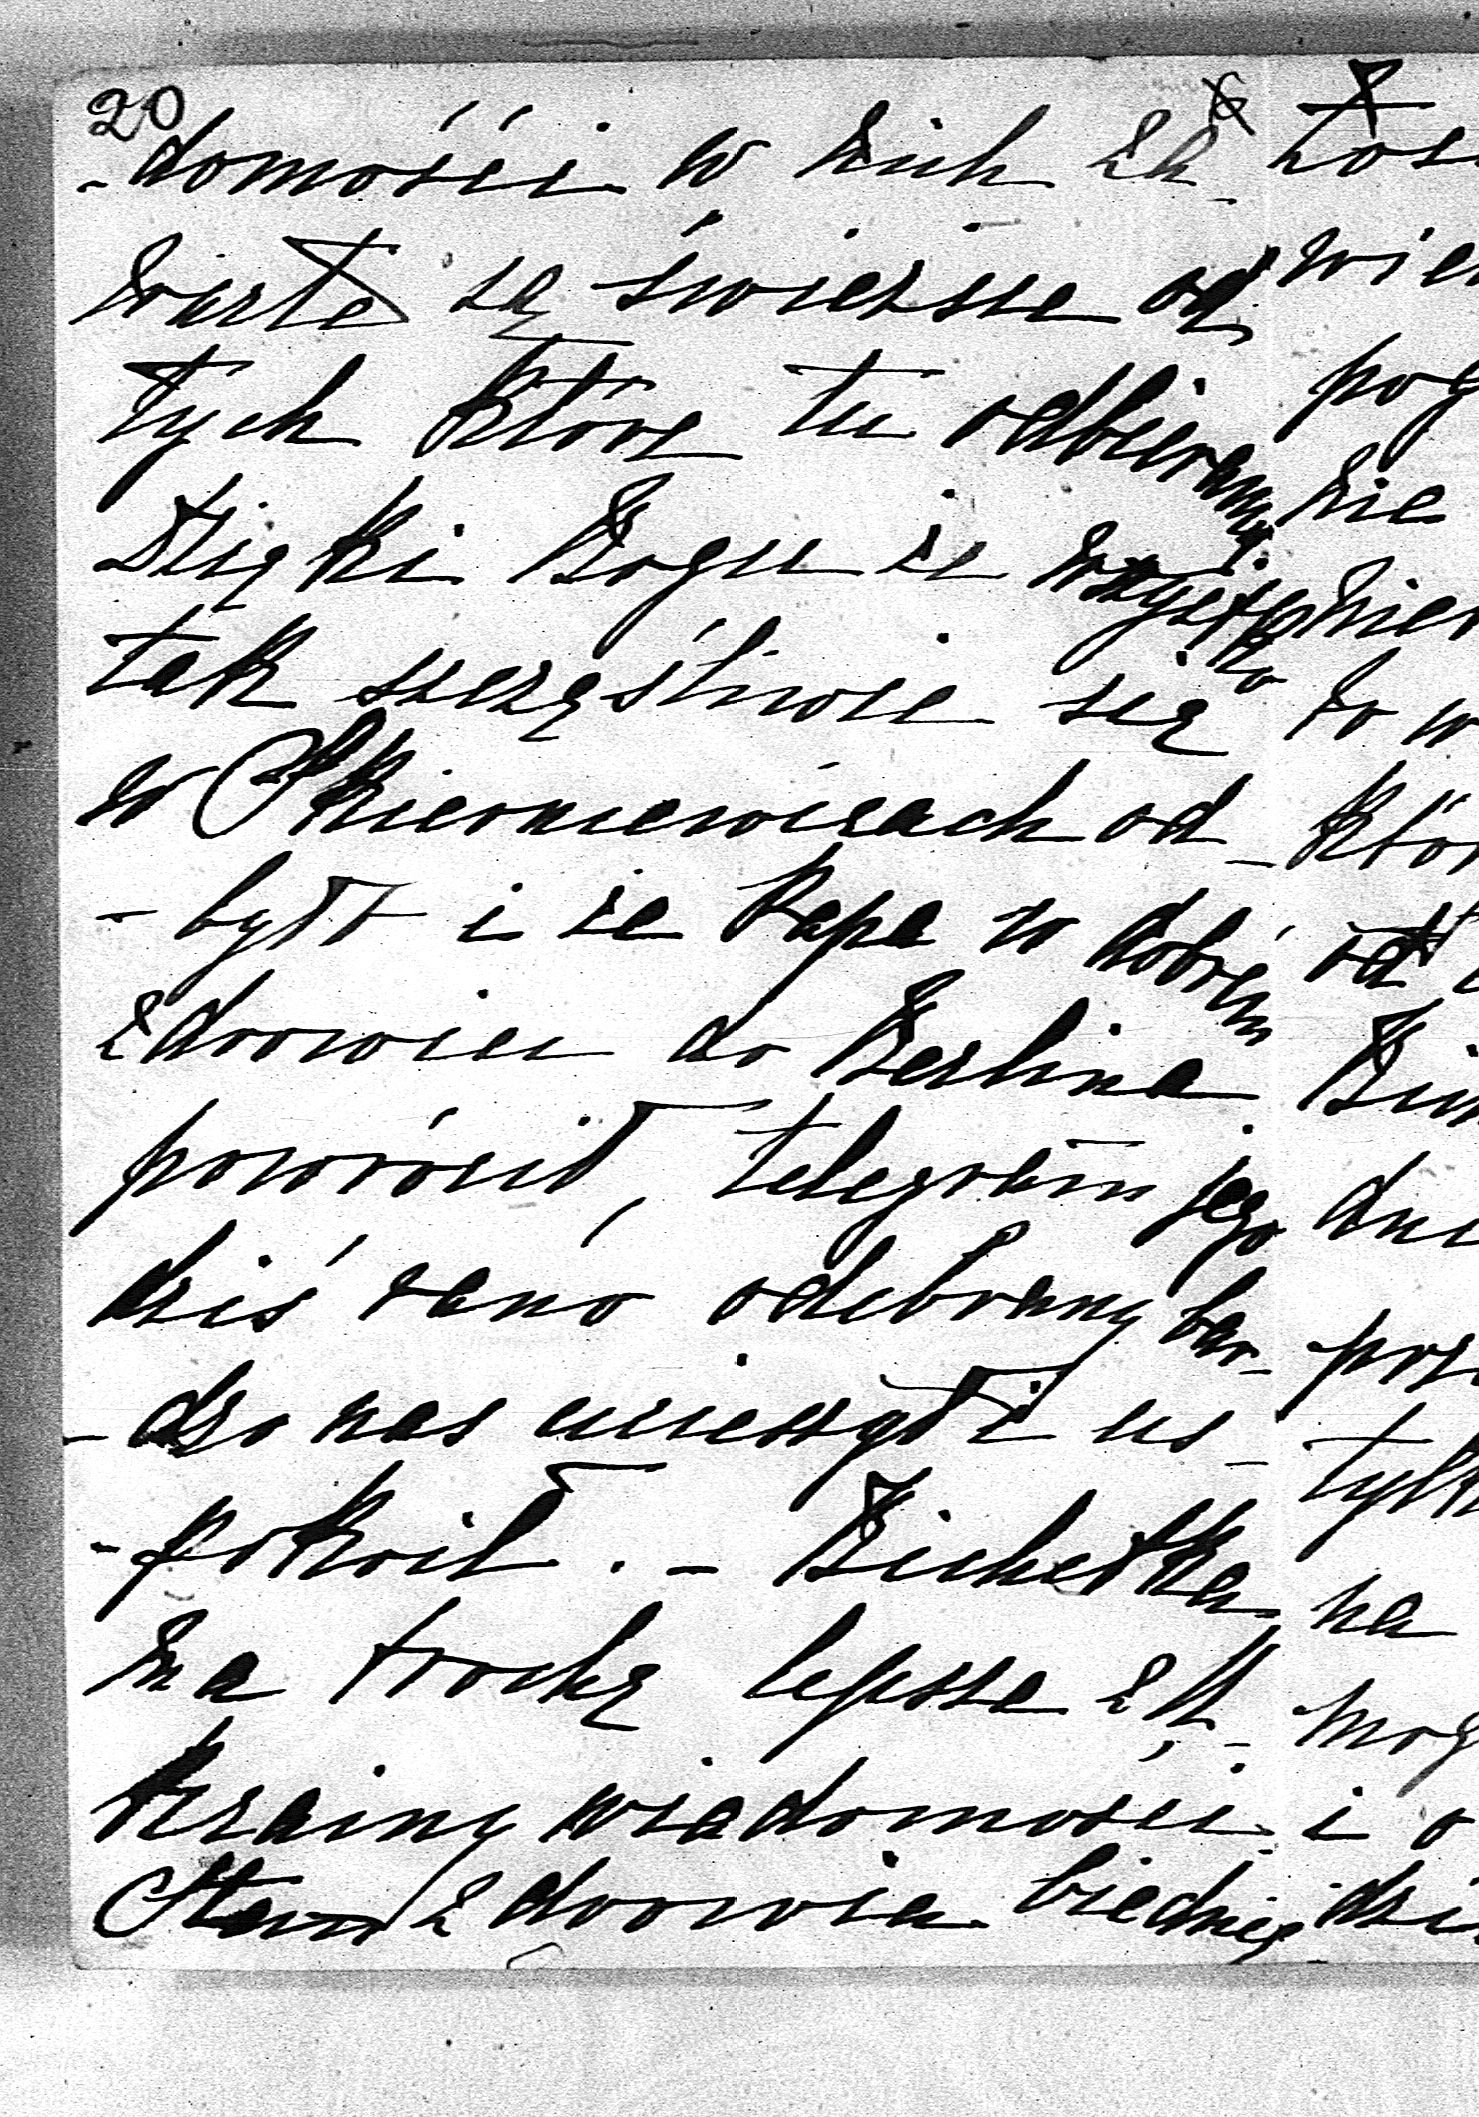 20
-domości w nich za-
warte są świeższe od
tych które tu odbieramy
Dzięki Bogu że wszystko
tak szczęśliwie się
w Skierniewicach od-
-było i że Papa w dobrem
zdrowiu do Berlina
powrócił, telegram jego
dziś rano odebrany bar-
-dzo nas ucieszył i us-
-pokoił. - Bichetka
ma trochę lepsze z
Ukrainy wiadomości.
Stan zdrowia biednej
wie
pog
nie
to w
któr
od
dni
tylk
na
mog
i o